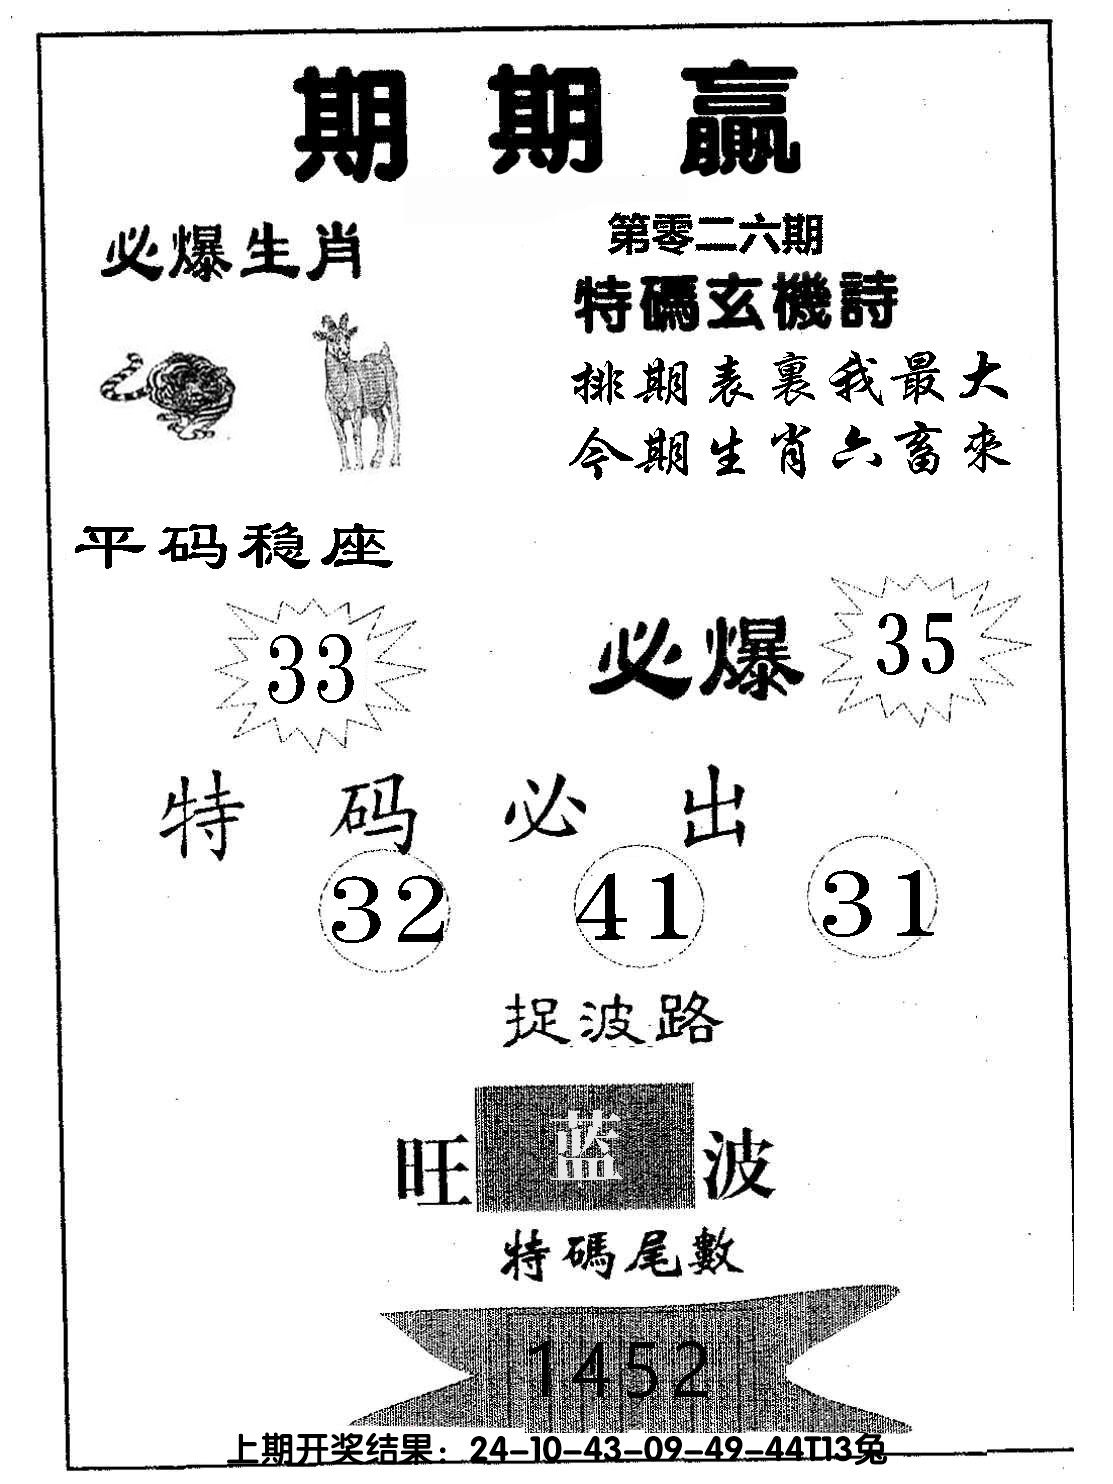 期期赢
必爆生肖
第零二六期
特碼玄機詩
排期表裏我最大
今期生肖六畜來
平码稳座
33
必爆
35
特码必出
32 41 31
捉波路
旺蓝波
特碼尾數
1452
上期开奖结果：24-10-43-09-49-44T13兔